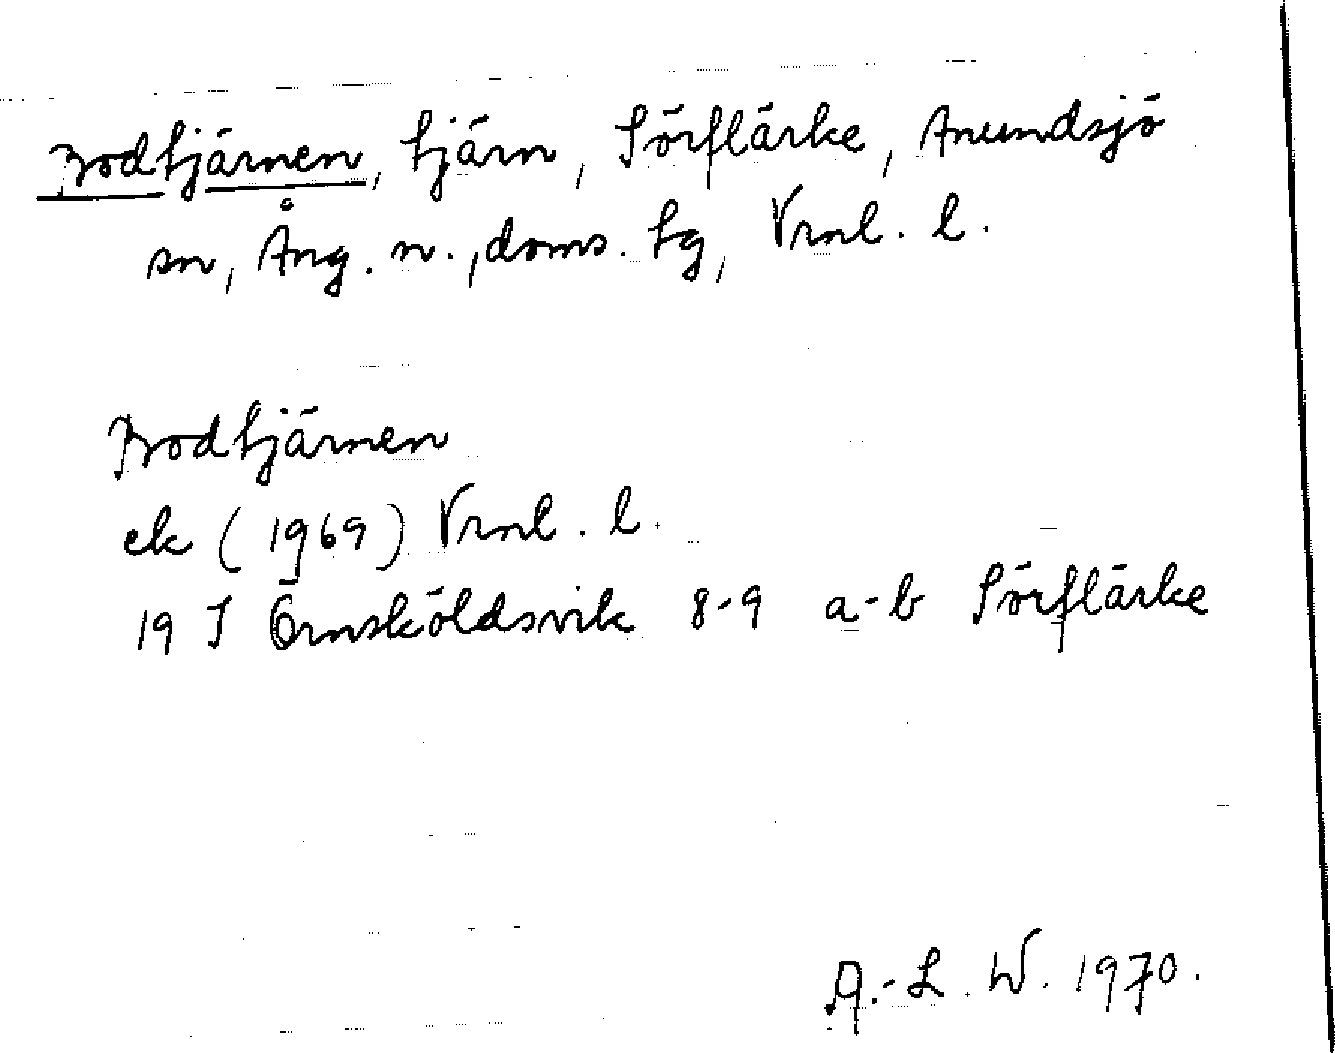 Bodtjärnen, tjärn, Sörflärke, Anundsjö
sn, Ång. n., doms. tg, Vrnl. l.
Bodtjärnen
ek (1969) Vrnl. l.
19 J Örnsköldsvik 8-9 a-b Sörflärke
A.-L. W. 1970.